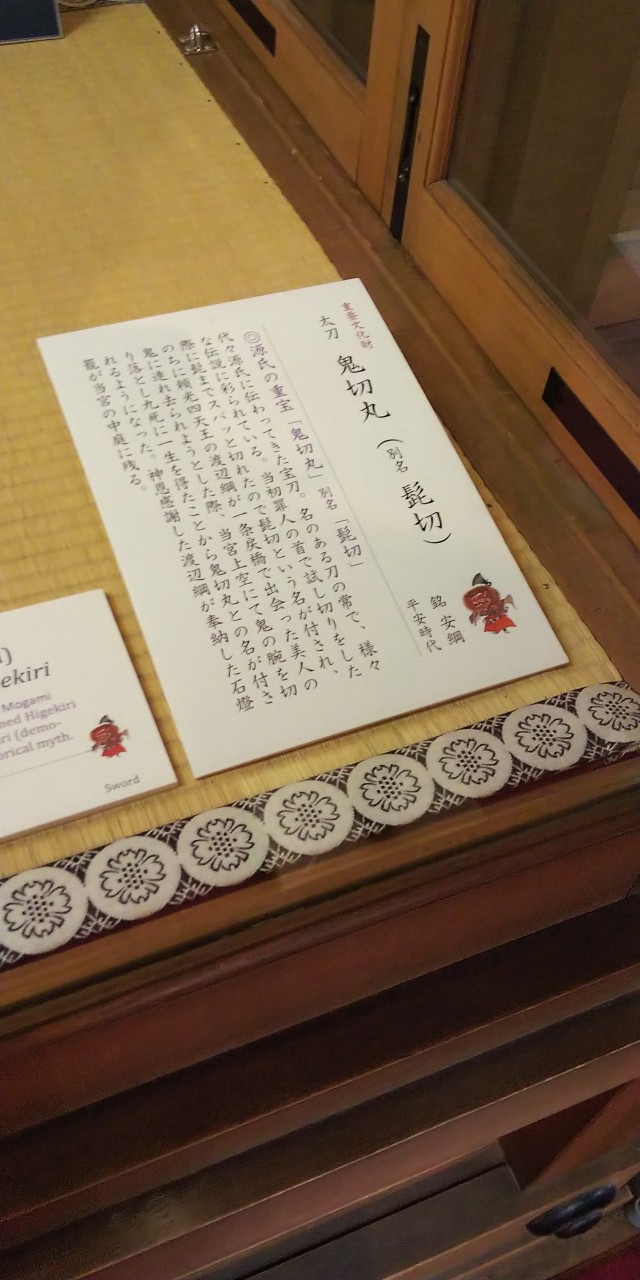 重要文化財
太刀 鬼切丸 (別名 髭切)
銘 安綱
平安時代
◎源氏の重宝「鬼切丸」別名「髭切」
代々源氏に伝わってきた宝刀。名のある刀の常で、様々
な伝説に彩られている。当初罪人の首で試し切りをした
際に髭までスパッと切れたので髭切という名が付され、
のちに頼光四天王の渡辺綱が一条戻橋で出会った美人の
鬼に連れ去られようとした際、当宮上空にて鬼の腕を切
り落とし九死に一生を得たことから鬼切丸との名が付さ
れるようになった。神恩感謝した渡辺綱が奉納した石燈
籠が当宮の中庭に残る。
ekiri
Mogami
ned Higekiri
ri (demo-
orical myth.
Sword